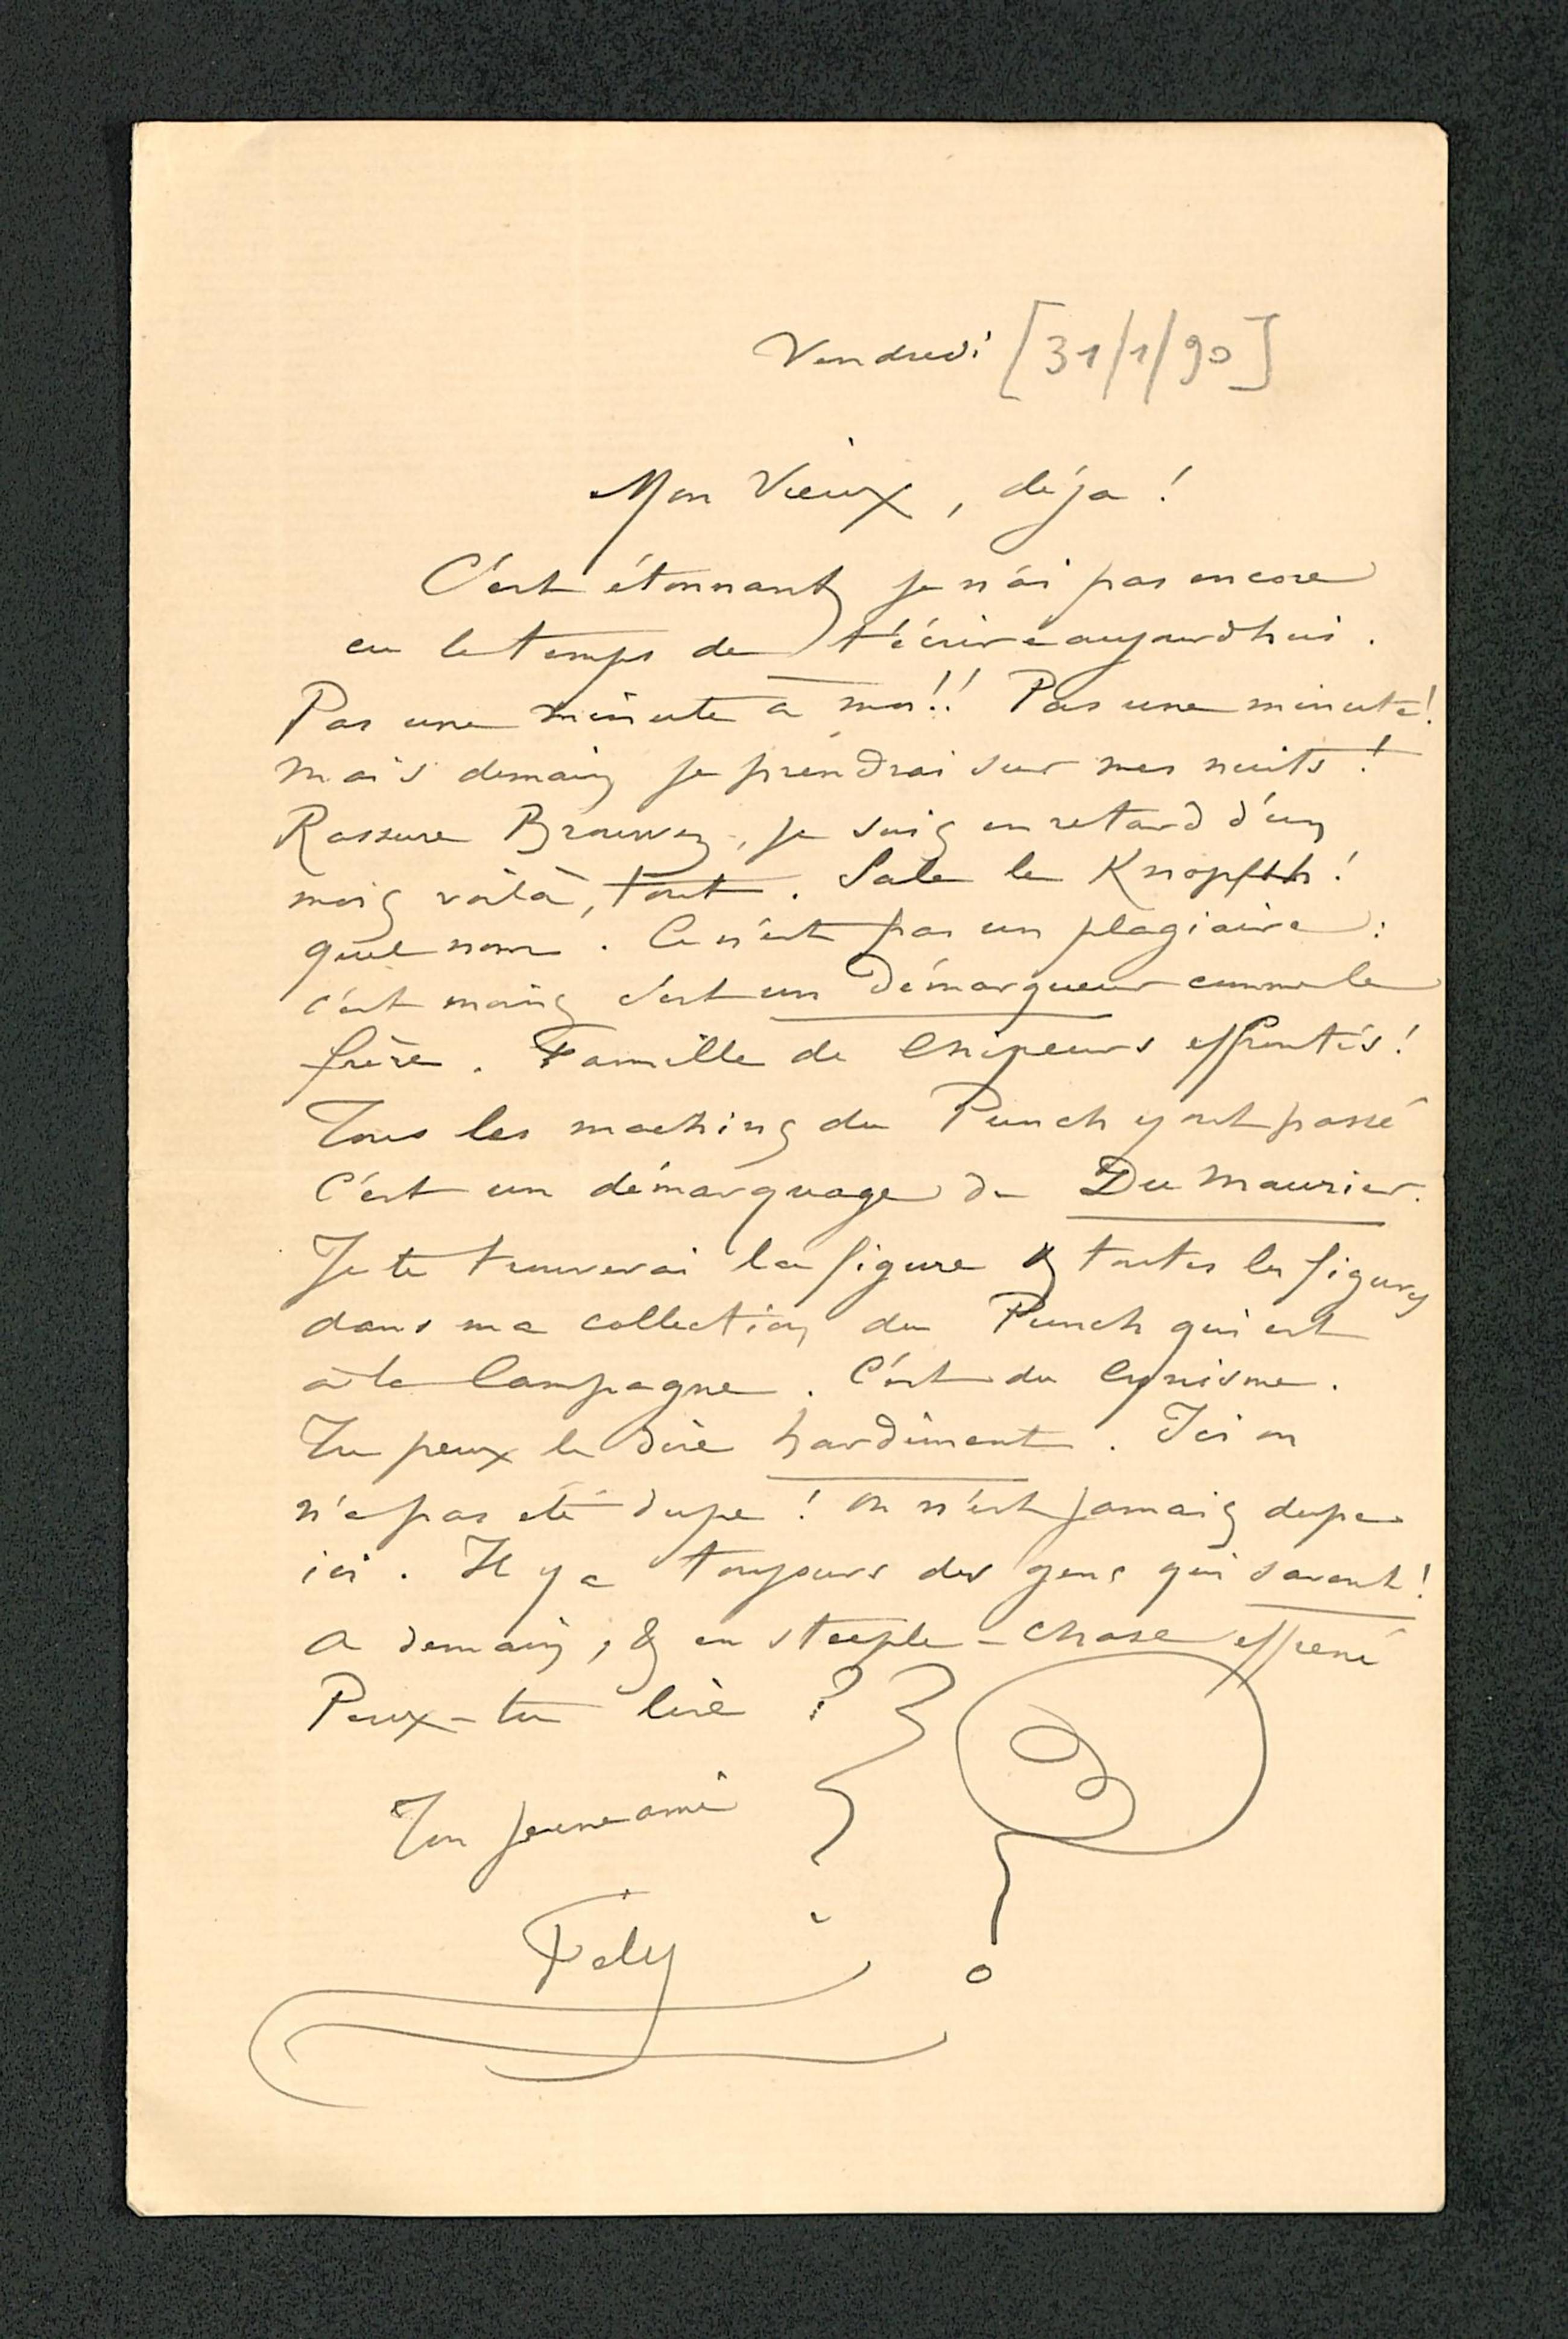 Vendredi [31/1/90]
Mon Vieux, déja !
C'est étonnant je n'ai pas encore
eu le temps de t'écrire aujourdhui.
Pas une minute a moi!! Pas une minute!
Mais demain je prendrai sur mes nuits !
Rassure Brouwez, je suis en retard d'un
mois voilà, tout. Sale le Knopfth !
quel nom. Ce n'est pas un plagiaire :
c'est moins c'est un démarqueur comme le
frère. Famille de Chipeurs effrontés!
Tous les machins du Punch y ont passé
C'est un démarquage de Du Maurier.
Je te trouverai la figure & toutes les figures
dans ma collection du Punch qui est
à la Campagne. C'est du Cynisme.
Tu peux le dire hardiment. Ici on
n'a pas été dupe ! on n'est jamais dupe
ici. Il y a toujours des gens qui savent!
A demain, & en steeple-chase effréné
Peux-tu lire ?
Ton jeune ami
Fély